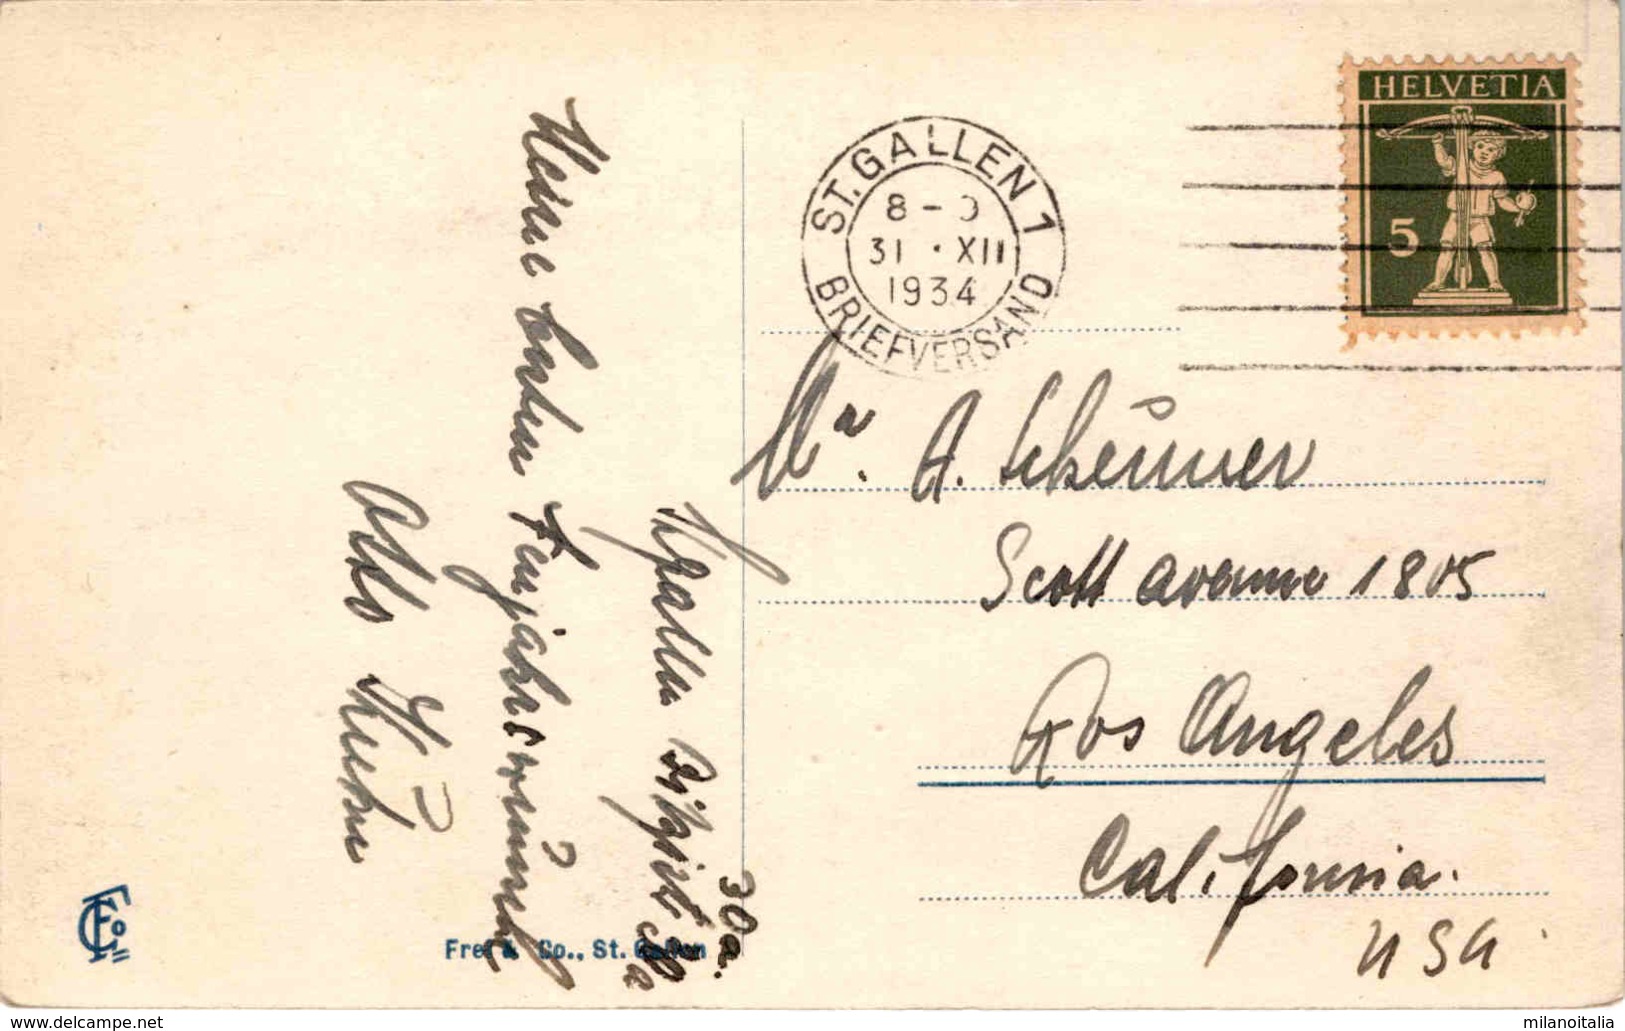 Meine besten Neujahrswünsche
Otto Kuhn
St. Gallen
30a.
Frei & Co., St. Gallen
ST. GALLEN 1
8 – 9
31 · XII
1934
BRIEFVERSAND
HELVETIA
5
Mr. A. Scheuner
Scott avenue 1805
Los Angeles
California.
USA.
www.delcampe.net
milanoitalia